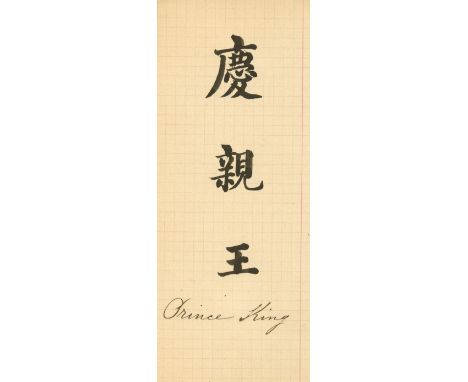 慶親王
Prince King